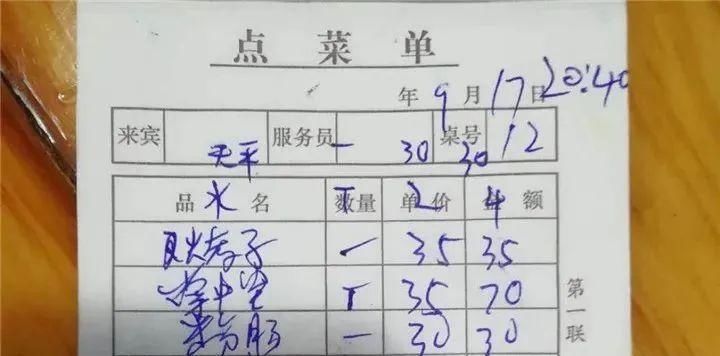 点菜单
年 9 月 17 日 20:40
来宾 服务员 桌号 12
天平 一 30 30
品名 数量 单价 金额
水 T 2 4
子 一 35 35
T 35 70
肠 一 30 30
第一联